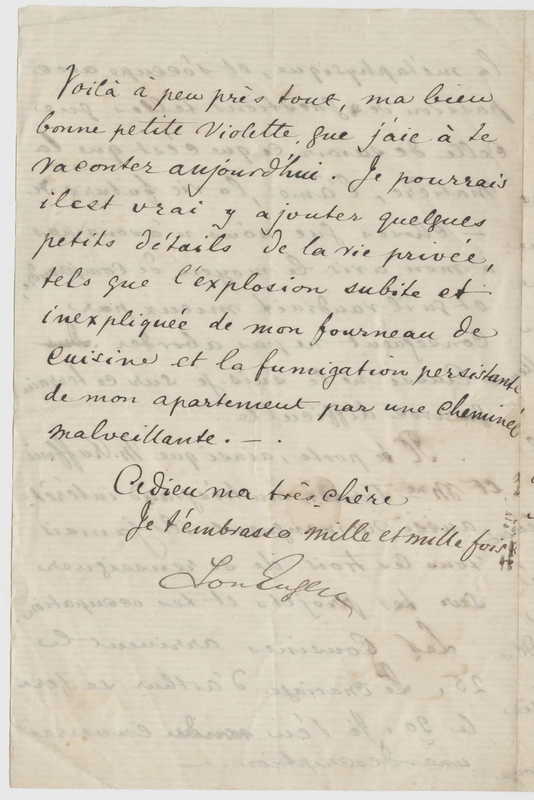 Voilà à peu près tout, ma bien
bonne petite Violette, que j'aie à te
raconter aujourd'hui. Je pourrais
il est vrai y ajouter quelques
petits détails de la vie privée,
tels que l'explosion subite et
inexpliquée de mon fourneau de
cuisine et la fumigation persistante
de mon apartement par une cheminée
malveillante. — .
Adieu ma très-chère
Je t'embrasse mille et mille fois
Ton Eugène